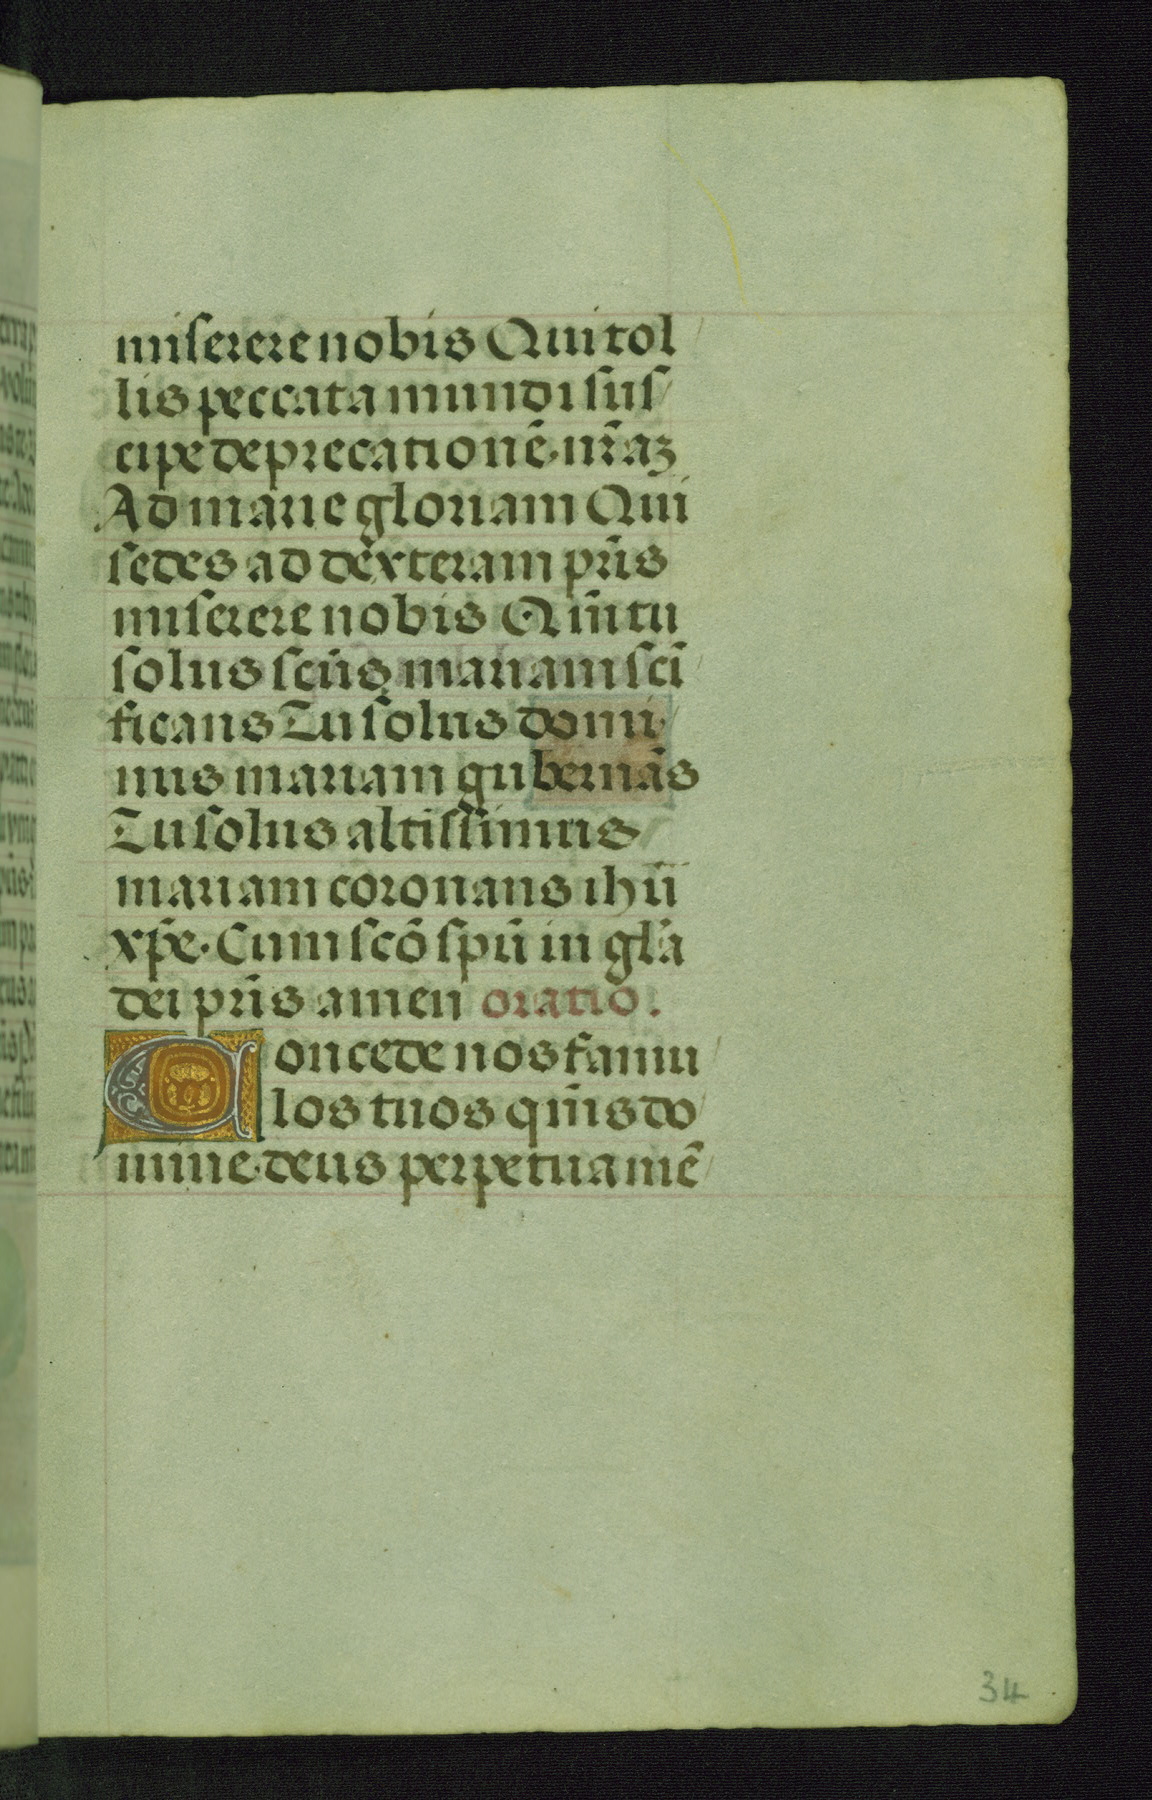 miserere nobis Qui tol
lis peccata mundi sus
cipe deprecationē nr̄aꝫ
Ad marie gloriam Qui
sedes ad dexteram pr̄is
miserere nobis Qm̄ tu
solus sc̄us mariam sc̄i
ficans Tu solus domi
nus mariam gubernās
Tu solus altissimus
mariam coronans ihū
xp̄e. Cum sc̄o spū in gl̄a
dei pr̄is amen oratio.
Concede nos famu
los tuos qm̄s do
mine deus perpetua mē
34